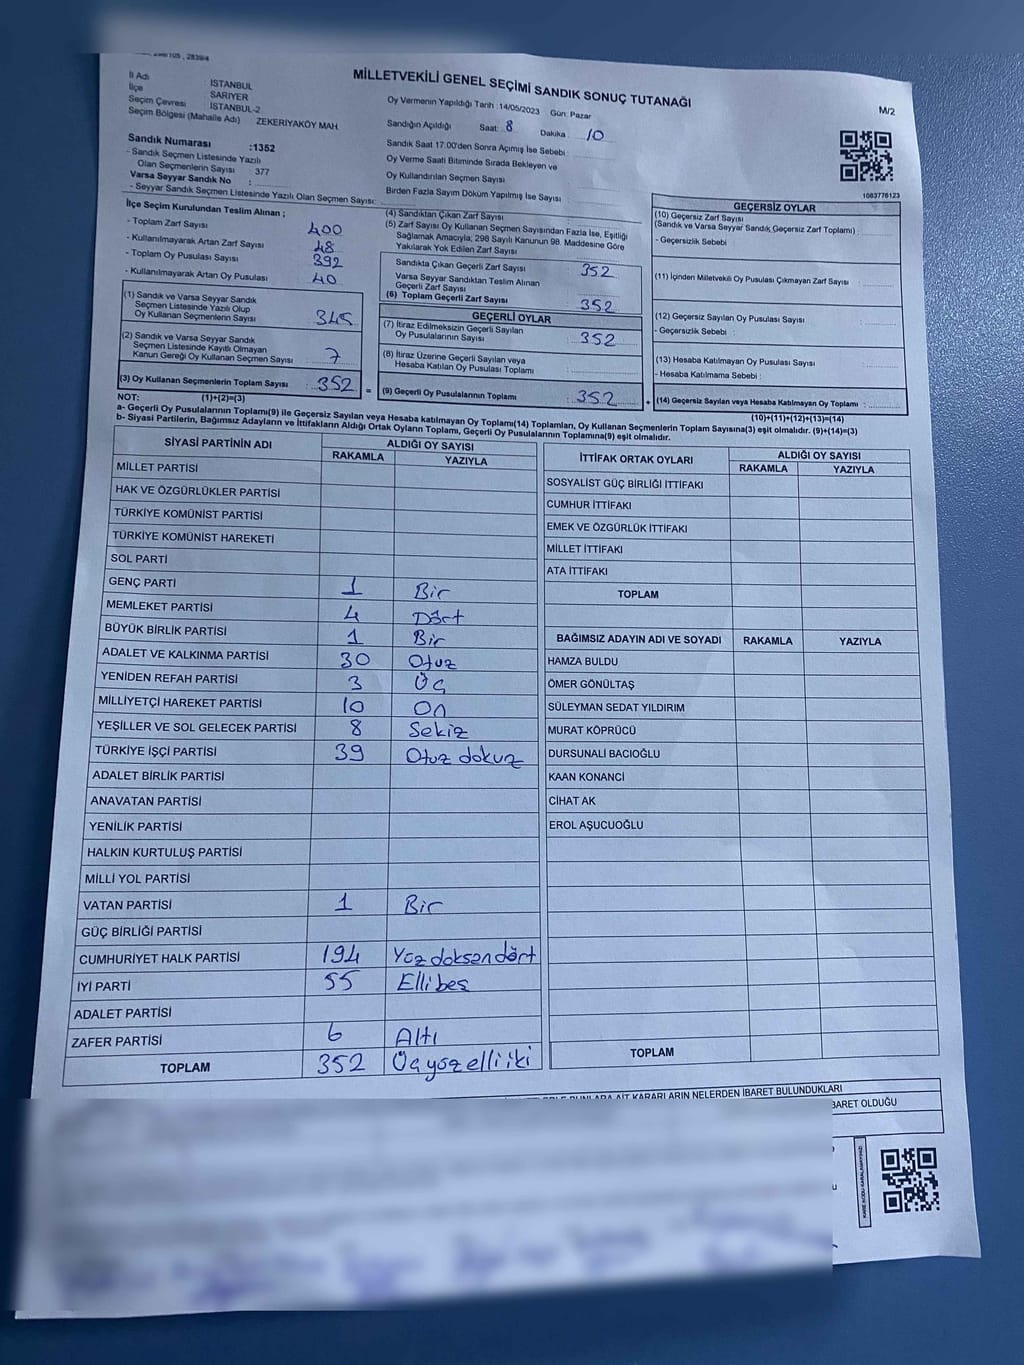 MİLLETVEKİLİ GENEL SEÇİMİ SANDIK SONUÇ TUTANAĞI
M/2
İl Adı İSTANBUL
İlçe SARIYER
Seçim Çevresi İSTANBUL-2
Seçim Bölgesi (Mahalle Adı) ZEKERİYAKÖY MAH.
Oy Vermenin Yapıldığı Tarih :14/05/2023 Gün: Pazar
Sandığın Açıldığı Saat: 8 Dakika : 10
Sandık Saat 17:00'den Sonra Açımış İse Sebebi :
Oy Verme Saati Bitiminde Sırada Bekleyen ve
Oy Kullandırılan Seçmen Sayısı
Birden Fazla Sayım Döküm Yapılmış İse Sayısı
Sandık Numarası :1352
- Sandık Seçmen Listesinde Yazılı
Olan Seçmenlerin Sayısı : 377
Varsa Seyyar Sandık No :
- Seyyar Sandık Seçmen Listesinde Yazılı Olan Seçmen Sayısı:
1083776123
İlçe Seçim Kurulundan Teslim Alınan ;
- Toplam Zarf Sayısı 400
- Kullanılmayarak Artan Zarf Sayısı 48
- Toplam Oy Pusulası Sayısı 392
- Kullanılmayarak Artan Oy Pusulası 40
(1) Sandık ve Varsa Seyyar Sandık
Seçmen Listesinde Yazılı Olup
Oy Kullanan Seçmenlerin Sayısı 345
(2) Sandık ve Varsa Seyyar Sandık
Seçmen Listesinde Kayıtlı Olmayan
Kanun Gereği Oy Kullanan Seçmen Sayısı 7
(3) Oy Kullanan Seçmenlerin Toplam Sayısı : 352 =
(4) Sandıktan Çıkan Zarf Sayısı
(5) Zarf Sayısı Oy Kullanan Seçmen Sayısından Fazla İse, Eşitliği
Sağlamak Amacıyla; 298 Sayılı Kanunun 98. Maddesine Göre
Yakılarak Yok Edilen Zarf Sayısı
Sandıkta Çıkan Geçerli Zarf Sayısı 352
Varsa Seyyar Sandıktan Teslim Alınan
Geçerli Zarf Sayısı
(6) Toplam Geçerli Zarf Sayısı 352
GEÇERLİ OYLAR
(7) İtiraz Edilmeksizin Geçerli Sayılan
Oy Pusulalarının Sayısı : 352
(8) İtiraz Üzerine Geçerli Sayılan veya
Hesaba Katılan Oy Pusulası Toplamı :
(9) Geçerli Oy Pusulalarının Toplamı : 352 +
GEÇERSİZ OYLAR
(10) Geçersiz Zarf Sayısı
(Sandık ve Varsa Seyyar Sandık Geçersiz Zarf Toplamı)
- Geçersizlik Sebebi
(11) İçinden Milletvekili Oy Pusulası Çıkmayan Zarf Sayısı
(12) Geçersiz Sayılan Oy Pusulası Sayısı
- Geçersizlik Sebebi :
(13) Hesaba Katılmayan Oy Pusulası Sayısı
- Hesaba Katılmama Sebebi :
(14) Geçersiz Sayılan veya Hesaba Katılmayan Oy Toplamı :
NOT: (1)+(2)=(3) (10)+(11)+(12)+(13)=(14)
a- Geçerli Oy Pusulalarının Toplamı(9) ile Geçersiz Sayılan veya Hesaba katılmayan Oy Toplamı(14) Toplamları, Oy Kullanan Seçmenlerin Toplam Sayısına(3) eşit olmalıdır. (9)+(14)=(3)
b- Siyasi Partilerin, Bağımsız Adayların ve İttifakların Aldığı Ortak Oyların Toplamı, Geçerli Oy Pusulalarının Toplamına(9) eşit olmalıdır.
SİYASİ PARTİNİN ADI ALDIĞI OY SAYISI
RAKAMLA YAZIYLA
MİLLET PARTİSİ
HAK VE ÖZGÜRLÜKLER PARTİSİ
TÜRKİYE KOMÜNİST PARTİSİ
TÜRKİYE KOMÜNİST HAREKETİ
SOL PARTİ
GENÇ PARTİ 1 Bir
MEMLEKET PARTİSİ 4 Dört
BÜYÜK BİRLİK PARTİSİ 1 Bir
ADALET VE KALKINMA PARTİSİ 30 Otuz
YENİDEN REFAH PARTİSİ 3 Üç
MİLLİYETÇİ HAREKET PARTİSİ 10 On
YEŞİLLER VE SOL GELECEK PARTİSİ 8 Sekiz
TÜRKİYE İŞÇİ PARTİSİ 39 Otuz dokuz
ADALET BİRLİK PARTİSİ
ANAVATAN PARTİSİ
YENİLİK PARTİSİ
HALKIN KURTULUŞ PARTİSİ
MİLLİ YOL PARTİSİ
VATAN PARTİSİ 1 Bir
GÜÇ BİRLİĞİ PARTİSİ
CUMHURİYET HALK PARTİSİ 194 Yüz doksan dört
İYİ PARTİ 55 Elli beş
ADALET PARTİSİ
ZAFER PARTİSİ 6 Altı
TOPLAM 352 Üçyüz elli iki
İTTİFAK ORTAK OYLARI ALDIĞI OY SAYISI
RAKAMLA YAZIYLA
SOSYALİST GÜÇ BİRLİĞİ İTTİFAKI
CUMHUR İTTİFAKI
EMEK VE ÖZGÜRLÜK İTTİFAKI
MİLLET İTTİFAKI
ATA İTTİFAKI
TOPLAM
BAĞIMSIZ ADAYIN ADI VE SOYADI RAKAMLA YAZIYLA
HAMZA BULDU
ÖMER GÖNÜLTAŞ
SÜLEYMAN SEDAT YILDIRIM
MURAT KÖPRÜCÜ
DURSUNALİ BACIOĞLU
KAAN KONANCİ
CİHAT AK
EROL AŞUCUOĞLU
TOPLAM
AİT KARARLARIN NELERDEN İBARET BULUNDUKLARI
BARET OLDUĞU